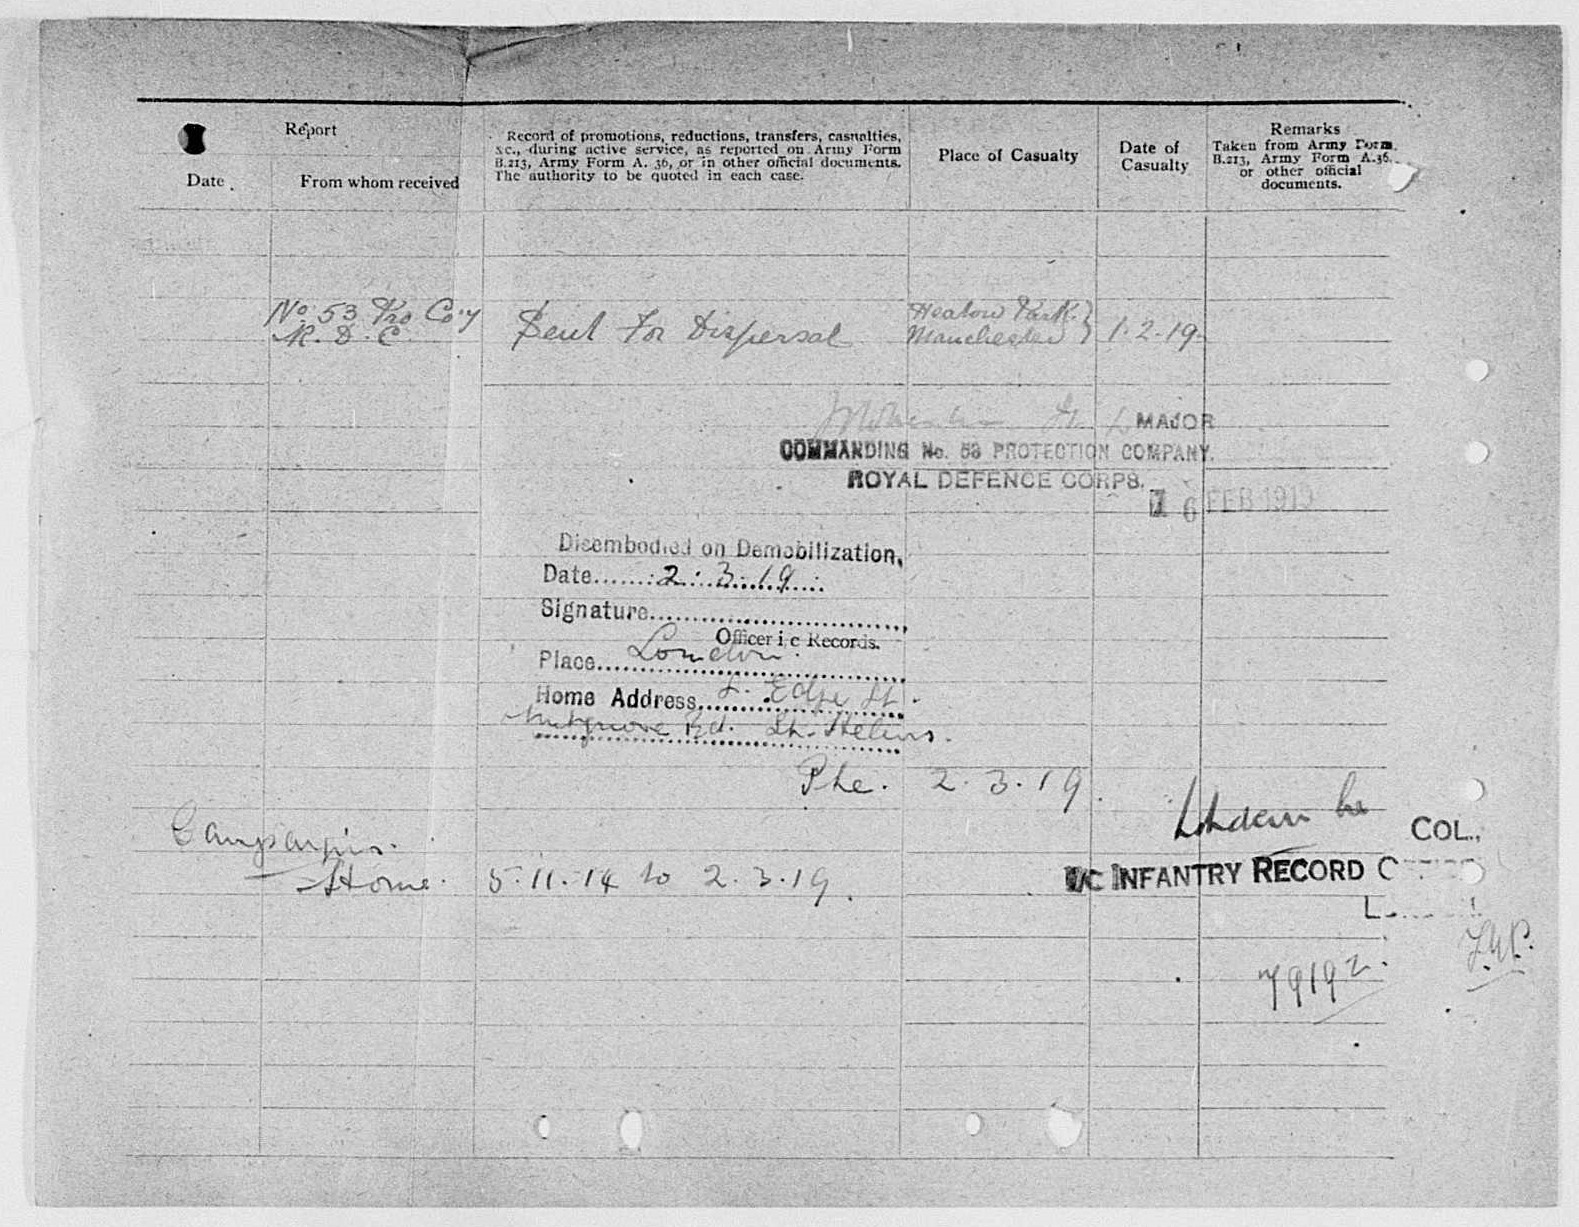 Report
Date
From whom received
Record of promotions, reductions, transfers, casualties,
&c., during active service, as reported on Army Form
B.213, Army Form A. 36, or in other official documents.
The authority to be quoted in each case.
Place of Casualty
Date of
Casualty
Remarks
Taken from Army Form
B.213, Army Form A.36,
or other official
documents.
No. 53 Pro Coy
R. D. C.
Sent For Dispersal
Heaton Park
Manchester
1.2.19.
MAJOR
COMMANDING No. 53 PROTECTION COMPANY.
ROYAL DEFENCE CORPS.
6 FEB 1919
Disembodied on Demobilization.
Date 2.3.19
Signature
Officer i/c Records.
Place London.
Home Address Edge St.
Nutgrove Rd. St. Helens.
Pte. 2.3.19.
COL.
Campaigns.
Home. 5.11.14 to 2.3.19.
I/C INFANTRY RECORD
79192.